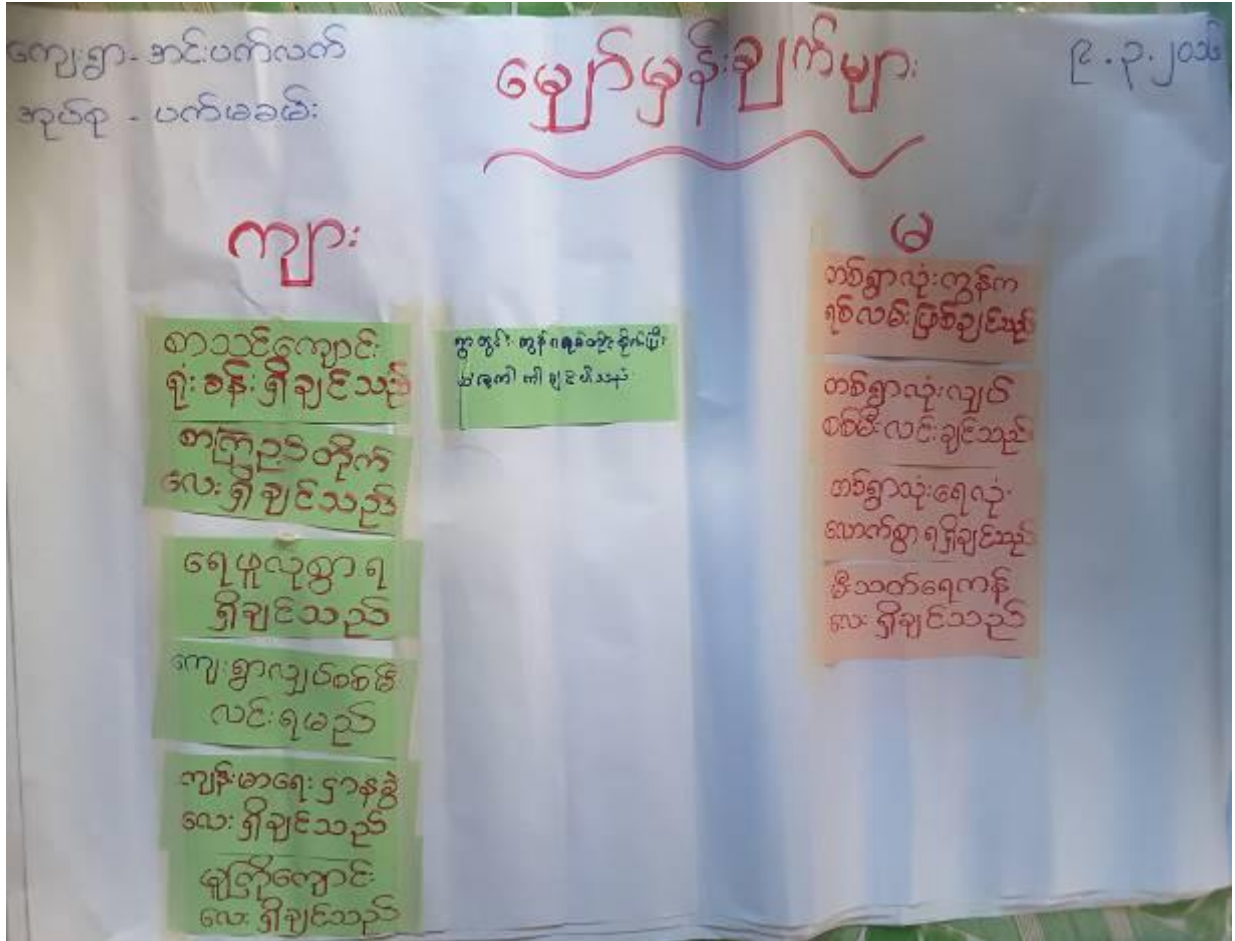 ကျေးရွာ - အင်းပက်လက်
အုပ်စု - ပက်မခမ်း
မျှော်မှန်းချက်များ
၉.၃.၂၀၁၆
ကျား
စာသင်ကျောင်း
ရုံးခန်းရှိချင်သည်
စာကြည့်တိုက်
လေးရှိချင်သည်
ရေဖူလုစွာရ
ရှိချင်သည်
ကျေးရွာလျှပ်စစ်မီး
လင်းရမည်
ကျန်းမာရေးဌာနခွဲ
လေးရှိချင်သည်
မူကြိုကျောင်း
လေးရှိချင်သည်
ရွာတွင်း ကွန်ကရစ်
ချင်ပါသည်
မ
တစ်ရွာလုံးကွန်က
ရစ်လမ်းဖြစ်ချင်သည်
တစ်ရွာလုံးလျှပ်
စစ်မီးလင်းချင်သည်
တစ်ရွာသုံးရေလုံ
လောက်စွာရရှိချင်သည်
မီးသတ်ရေကန်
လေးရှိချင်သည်